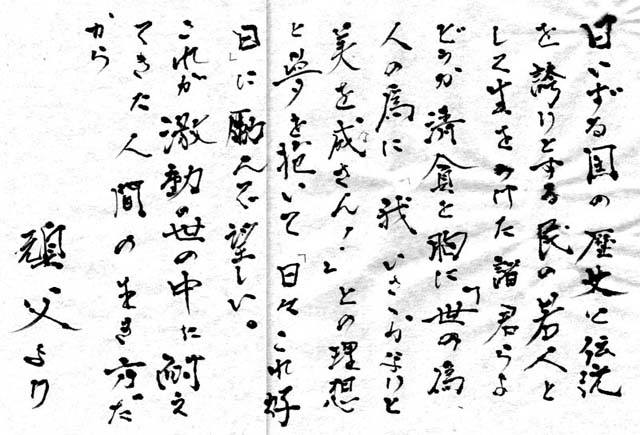 日いずる国の歴史と伝統
を誇りとする民の若人と
して生をうけた諸君らよ
どうか清貧を胸に「世の為
人の為に「我いささかなりと
美を成さん!」との理想
と夢を抱いて「日々これ好
日」に励んで望しい。
これが激動の世の中に耐え
てきた人間の生き方だ
から
頑父より